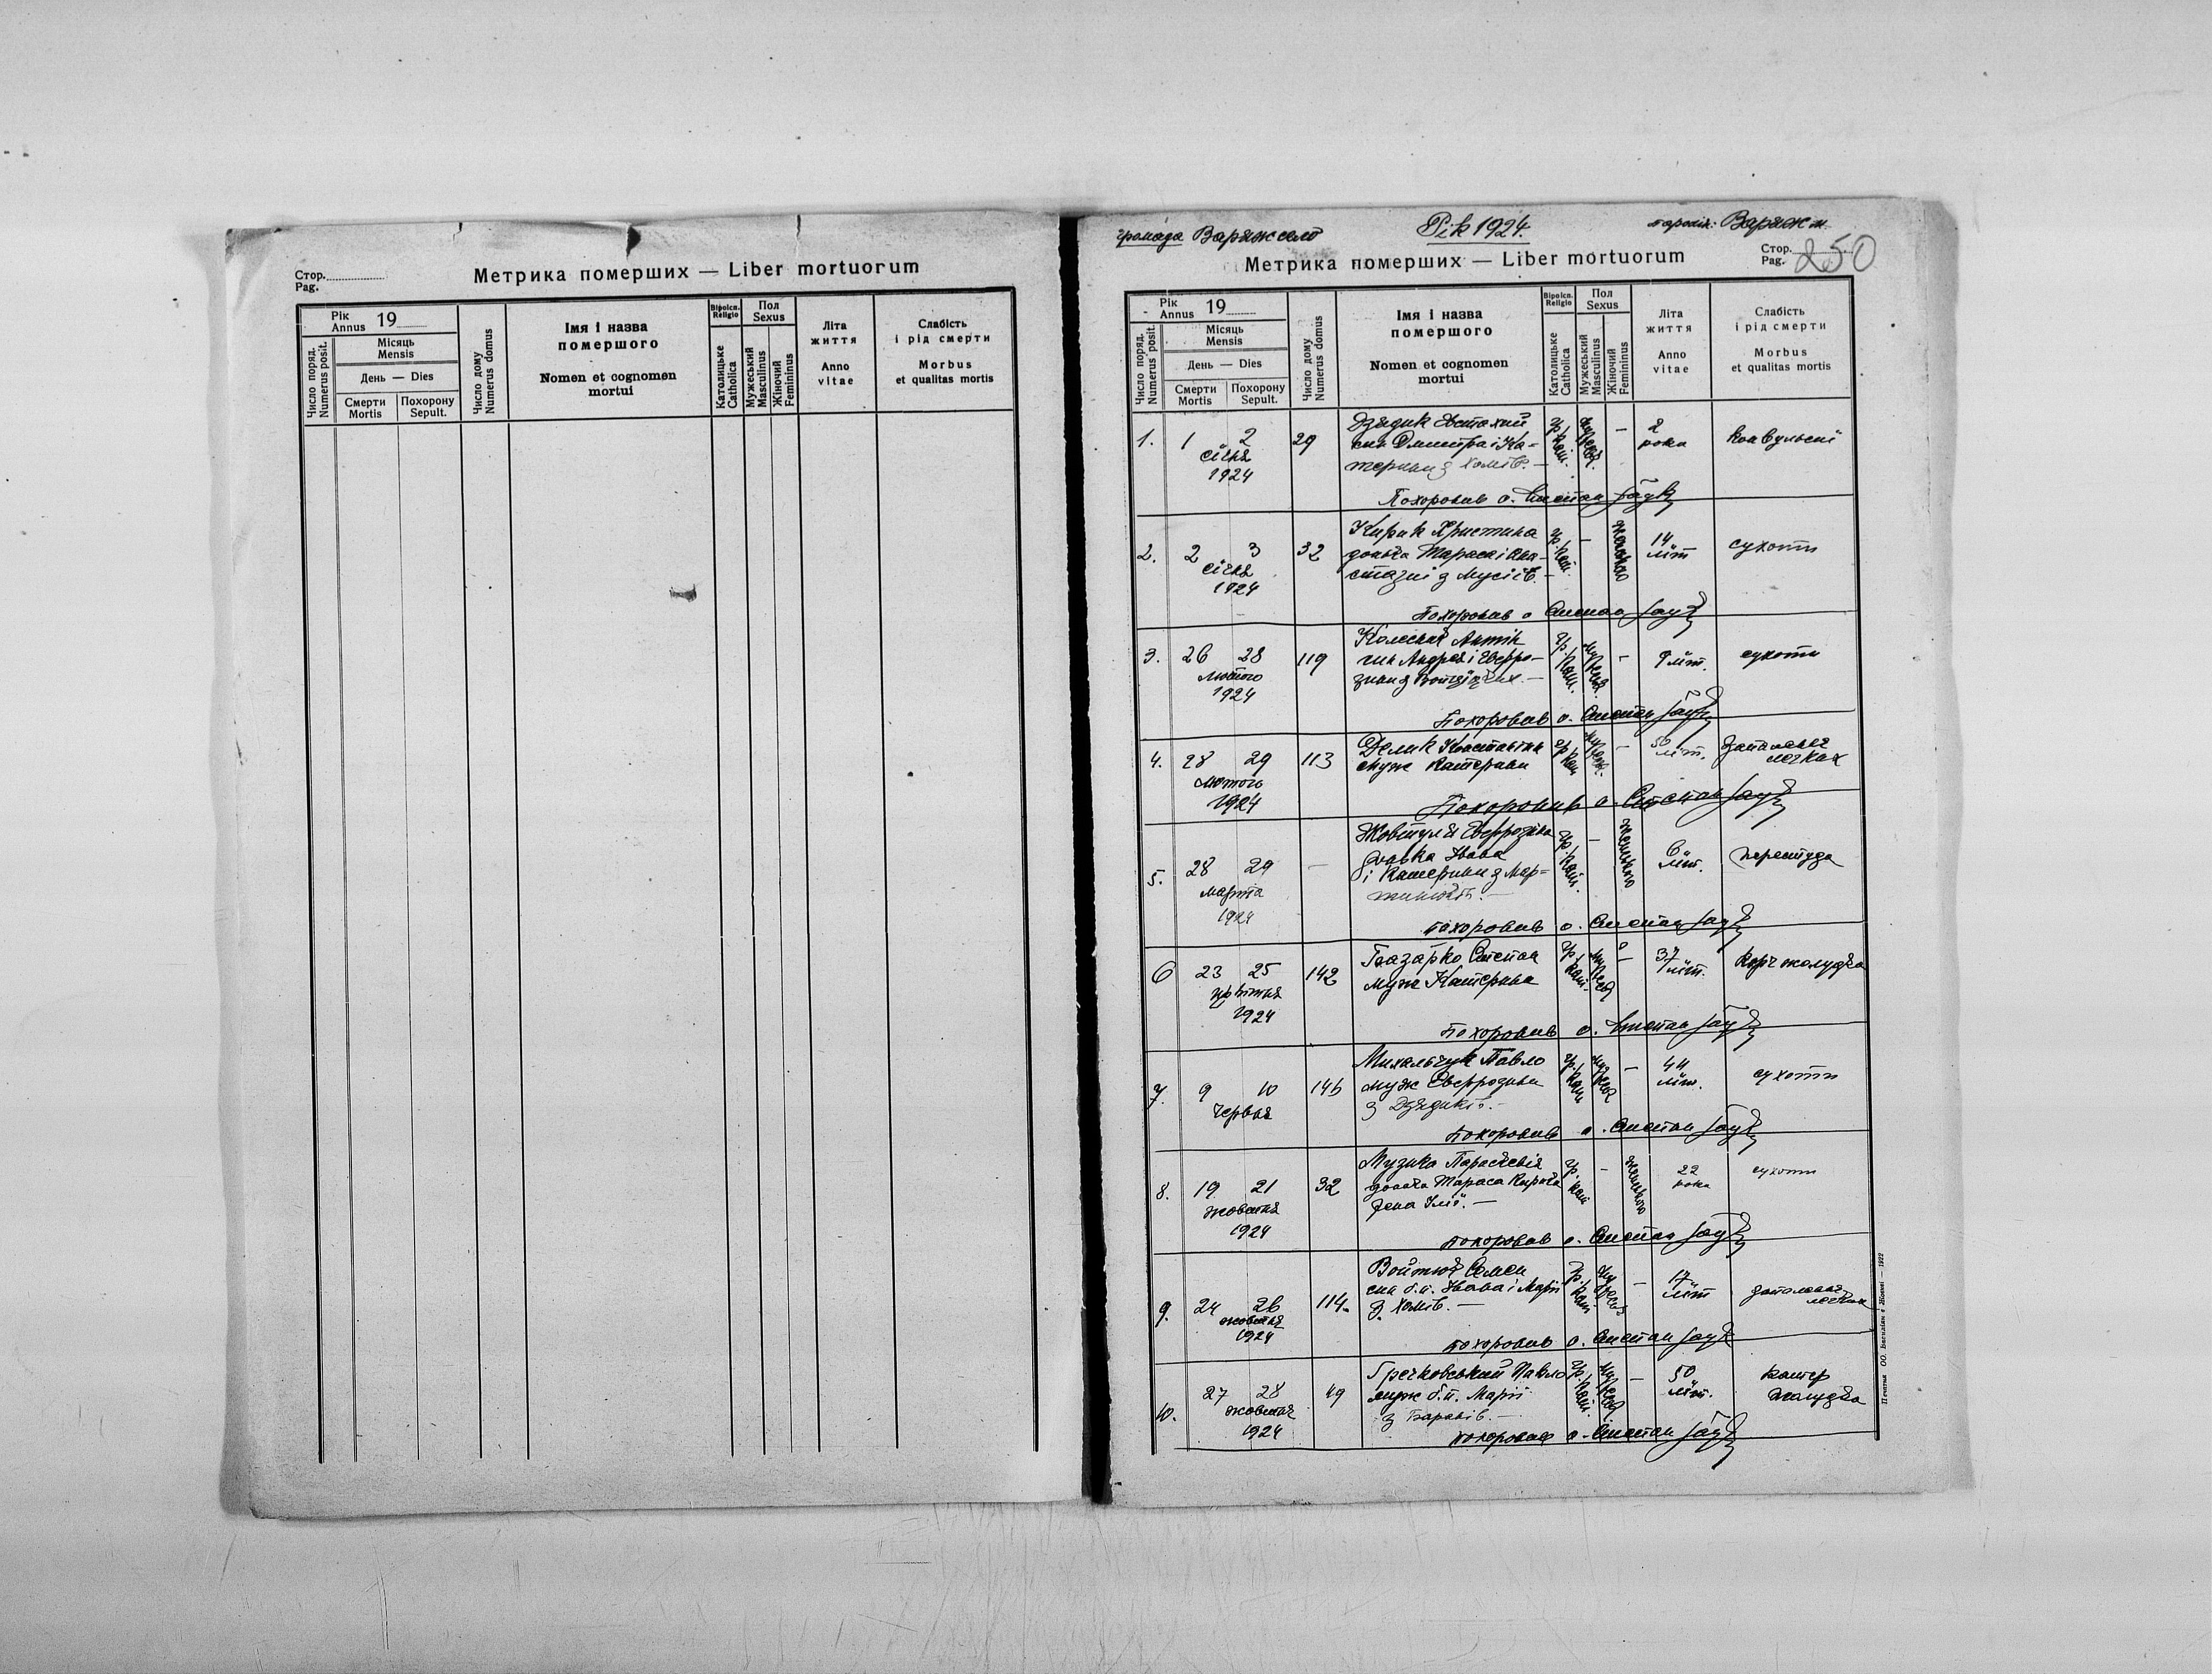 Стор.
Pag.
Метрика померших — Liber mortuorum
Рік
Annus 19
Число поряд.
Numerus posit.
Місяць
Mensis
День — Dies
Смерти
Mortis
Похорону
Sepult.
Число дому
Numerus domus
Імя і назва
помершого
Nomen et cognomen
mortui
Віроісп.
Religio
Католицьке
Catholica
Пол
Sexus
Мужеський
Masculinus
Жіночий
Femininus
Літа
життя
Anno
vitae
Слабість
і рід смерти
Morbus
et qualitas mortis
громада Варяж село
Рік 1924.
парохія: Варяж м.
Метрика померших — Liber mortuorum
Стор.
Pag. 250
Рік
Annus 19
Число поряд.
Numerus posit.
Місяць
Mensis
День — Dies
Смерти
Mortis
Похорону
Sepult.
Число дому
Numerus domus
Імя і назва
помершого
Nomen et cognomen
mortui
Віроісп.
Religio
Католицьке
Catholica
Пол
Sexus
Мужеський
Masculinus
Жіночий
Femininus
Літа
життя
Anno
vitae
Слабість
і рід смерти
Morbus
et qualitas mortis
1. 1 2 січня 1924 29
Дзядик Евстахий
син Дмитра і Ка-
терини з Хомів. —
гр. кат. — 2 рока конвульсиї
Похоронив о. Степан
2. 2 3 січня 1924 32
Кирик Христина
донька Тараса і Ана-
стазиї з Мусіїв. —
гр. кат. — женського 14 літ сухоти
Похоронив о Степан
3. 26 28 лютого 1924 119
Колесняк Антін
син Андрея і Евфро-
зини з
гр. кат. — 9 літ. сухоти
Похоронив о. Степан
4. 28 29 лютого 1924 113
Делик Константин
муж Катерини
гр. кат. — 50 літ. запаленя легких
Похоронив о. Степан
5. 28 29 марта 1924 —
Жовтуля Евфрозина
донька Івана
і Катерини з Мар-
гр. кат. — женського 6 літ. перестуда
похоронив о. Степан
6 23 25 цвітня 1924 142
Степан
муж Катерини
гр. кат. — 37 літ. жолудка
Похоронив о. Степан
7. 9 10 червня 146
Михальчук Павло
муж Евфрозини
з Дзядиків. —
гр. кат. — 44 літ. сухоти
Похоронив о. Степан
8. 19 21 жовтня 1924 32
Музика Параскевія
донька Тараса Кирика
жена Ілії. —
гр. кат — женського 22 рока сухоти
похоронив о. Степан
9. 24 26 жовтня 1924 114.
Войтюк Семен
син б.п. Івана і Марії
з Хомів. —
гр. кат. — 17 літ запаленя легких
похоронив о. Степан
10. 27 28 жовтня 1924 49
Гречковський Павло
муж б.п. Марії
з Баранів. —
гр. кат. — 50 літ. жолудка
похоронив о. Степан
Печатня ОО. Василіян в Жовкві — 1922